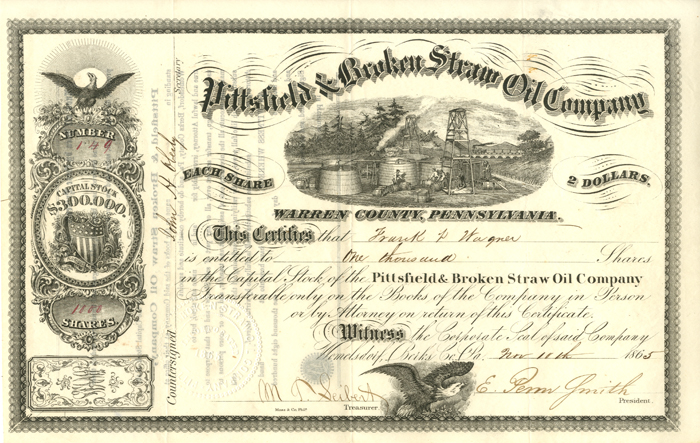 Pittsfield & Broken Straw Oil Company
EACH SHARE 2 DOLLARS.
WARREN COUNTY, PENNSYLVANIA.
NUMBER
149
CAPITAL STOCK
$300.000.
1000
SHARES.
Secretary
Countersigned
This Certifies that Frank Wagner
is entitled to One thousand Shares
in the Capital Stock of the Pittsfield & Broken Straw Oil Company
Transferable only on the Books of the Company in Person
or by Attorney on return of this Certificate.
Witness the Corporate Seal of said Company
Womelsdorf, Berks Co. Pa. Nov 11th 1865
M Seibert Treasurer
E. Penn Smith
President.